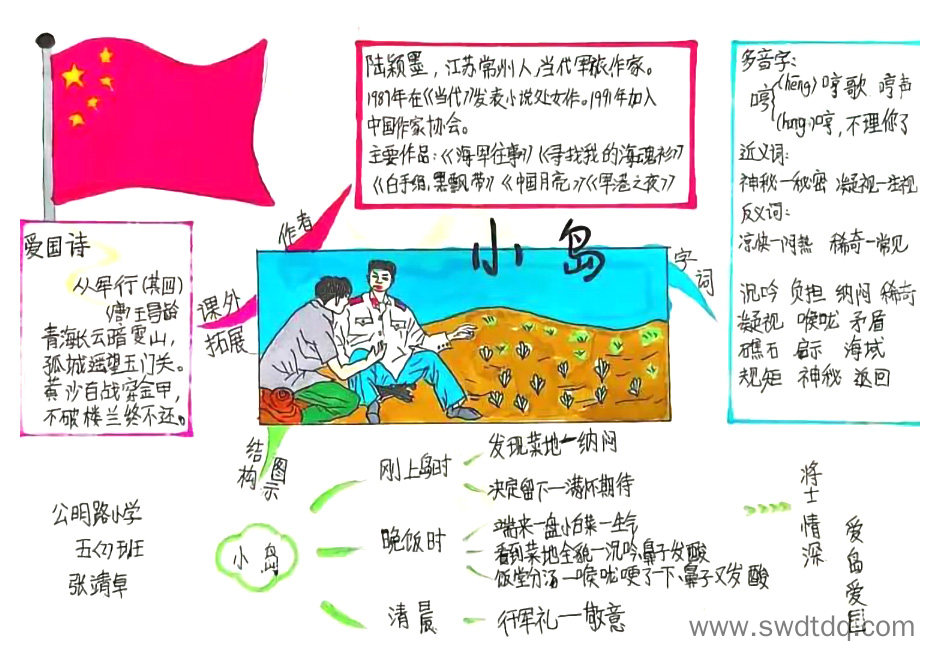 陆颖墨，江苏常州人，当代军旅作家。
1987年在《当代》发表小说处女作。1991年加入
中国作家协会。
主要作品：《海军往事》《寻找我的海魂衫》
《白手绢，黑飘带》《中国月亮》《军港之夜》
作者
多音字：
哼
(hēng) 哼歌 哼声
(hng) 哼，不理你了
近义词：
神秘—秘密 凝视—注视
反义词：
凉快—闷热 稀奇—常见
沉吟 负担 纳闷 稀奇
凝视 喉咙 矛盾
礁石 启示 海域
规矩 神秘 返回
字词
小岛
爱国诗
从军行(其四)
(唐)王昌龄
青海长云暗雪山，
孤城遥望玉门关。
黄沙百战穿金甲，
不破楼兰终不还。
课外
拓展
结构
图示
公明路小学
五<7>班
张靖卓
小岛
刚上岛时
发现菜地—纳闷
决定留下—满怀期待
晚饭时
端来一盘小白菜—生气
看到菜地全貌—沉吟、鼻子发酸
饭堂分汤—喉咙哽了一下、鼻子又发酸
清晨
行军礼—敬意
将士情深
爱岛爱国
www.swdtdq.com